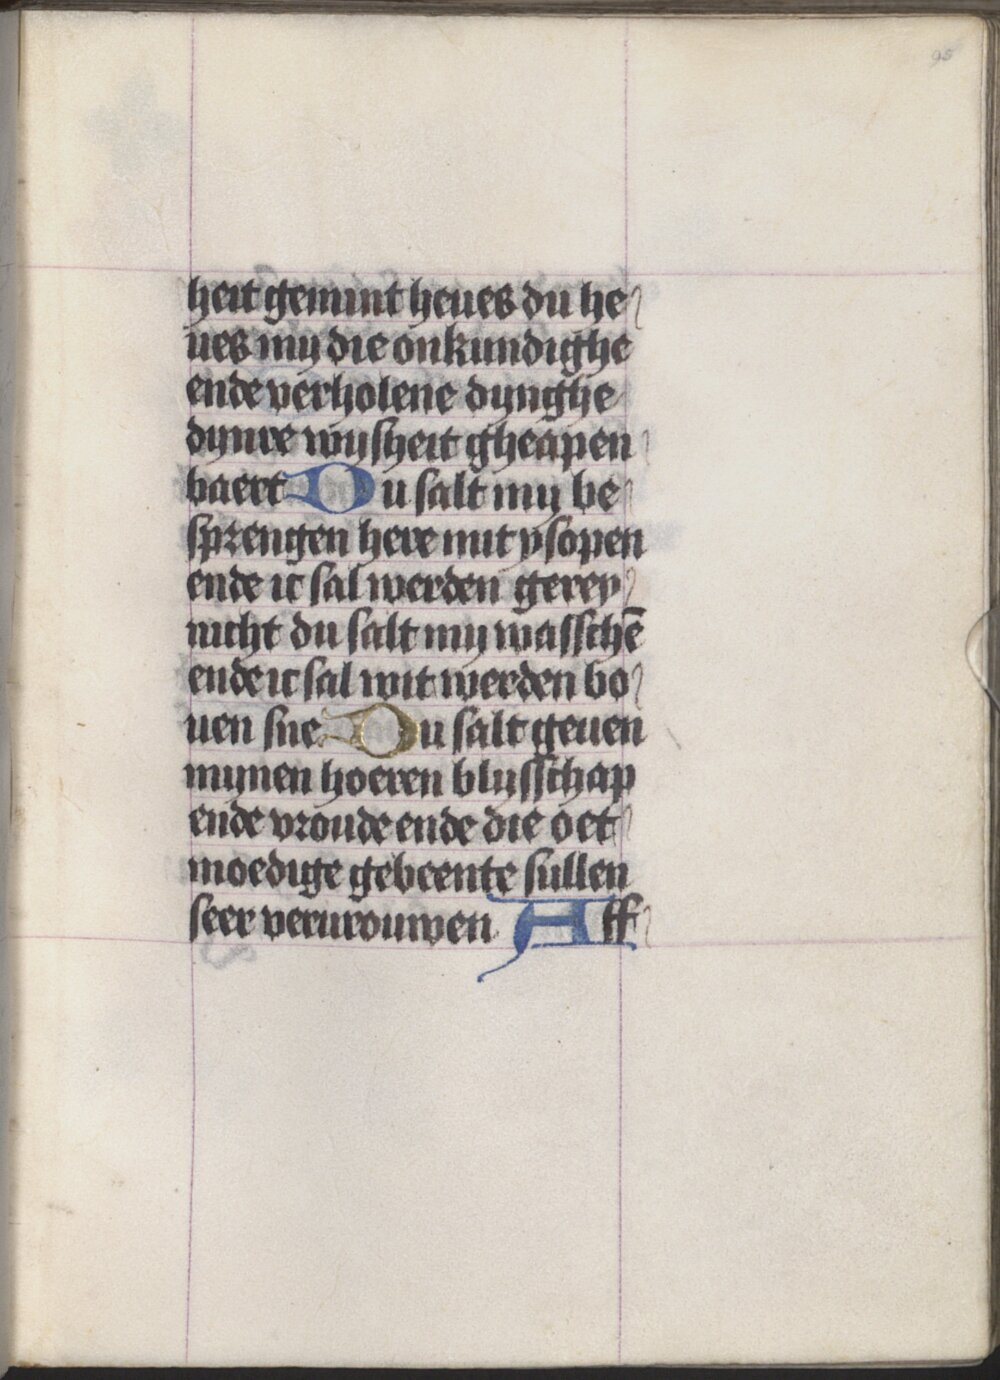 95
heit gemint heues du he
ues my die onkundighe
ende verholene dynghe
dynre wysheit gheapen
baert Du salt my be
sprengen here mit ysopen
ende ic sal werden gerey
nicht du salt my wasschē
ende ic sal wit werden bo
uen sne Du salt geuen
mynen hoeren blysschap
ende vroude ende die oet
moedige gebeente sullen
seer verurouwen Aff